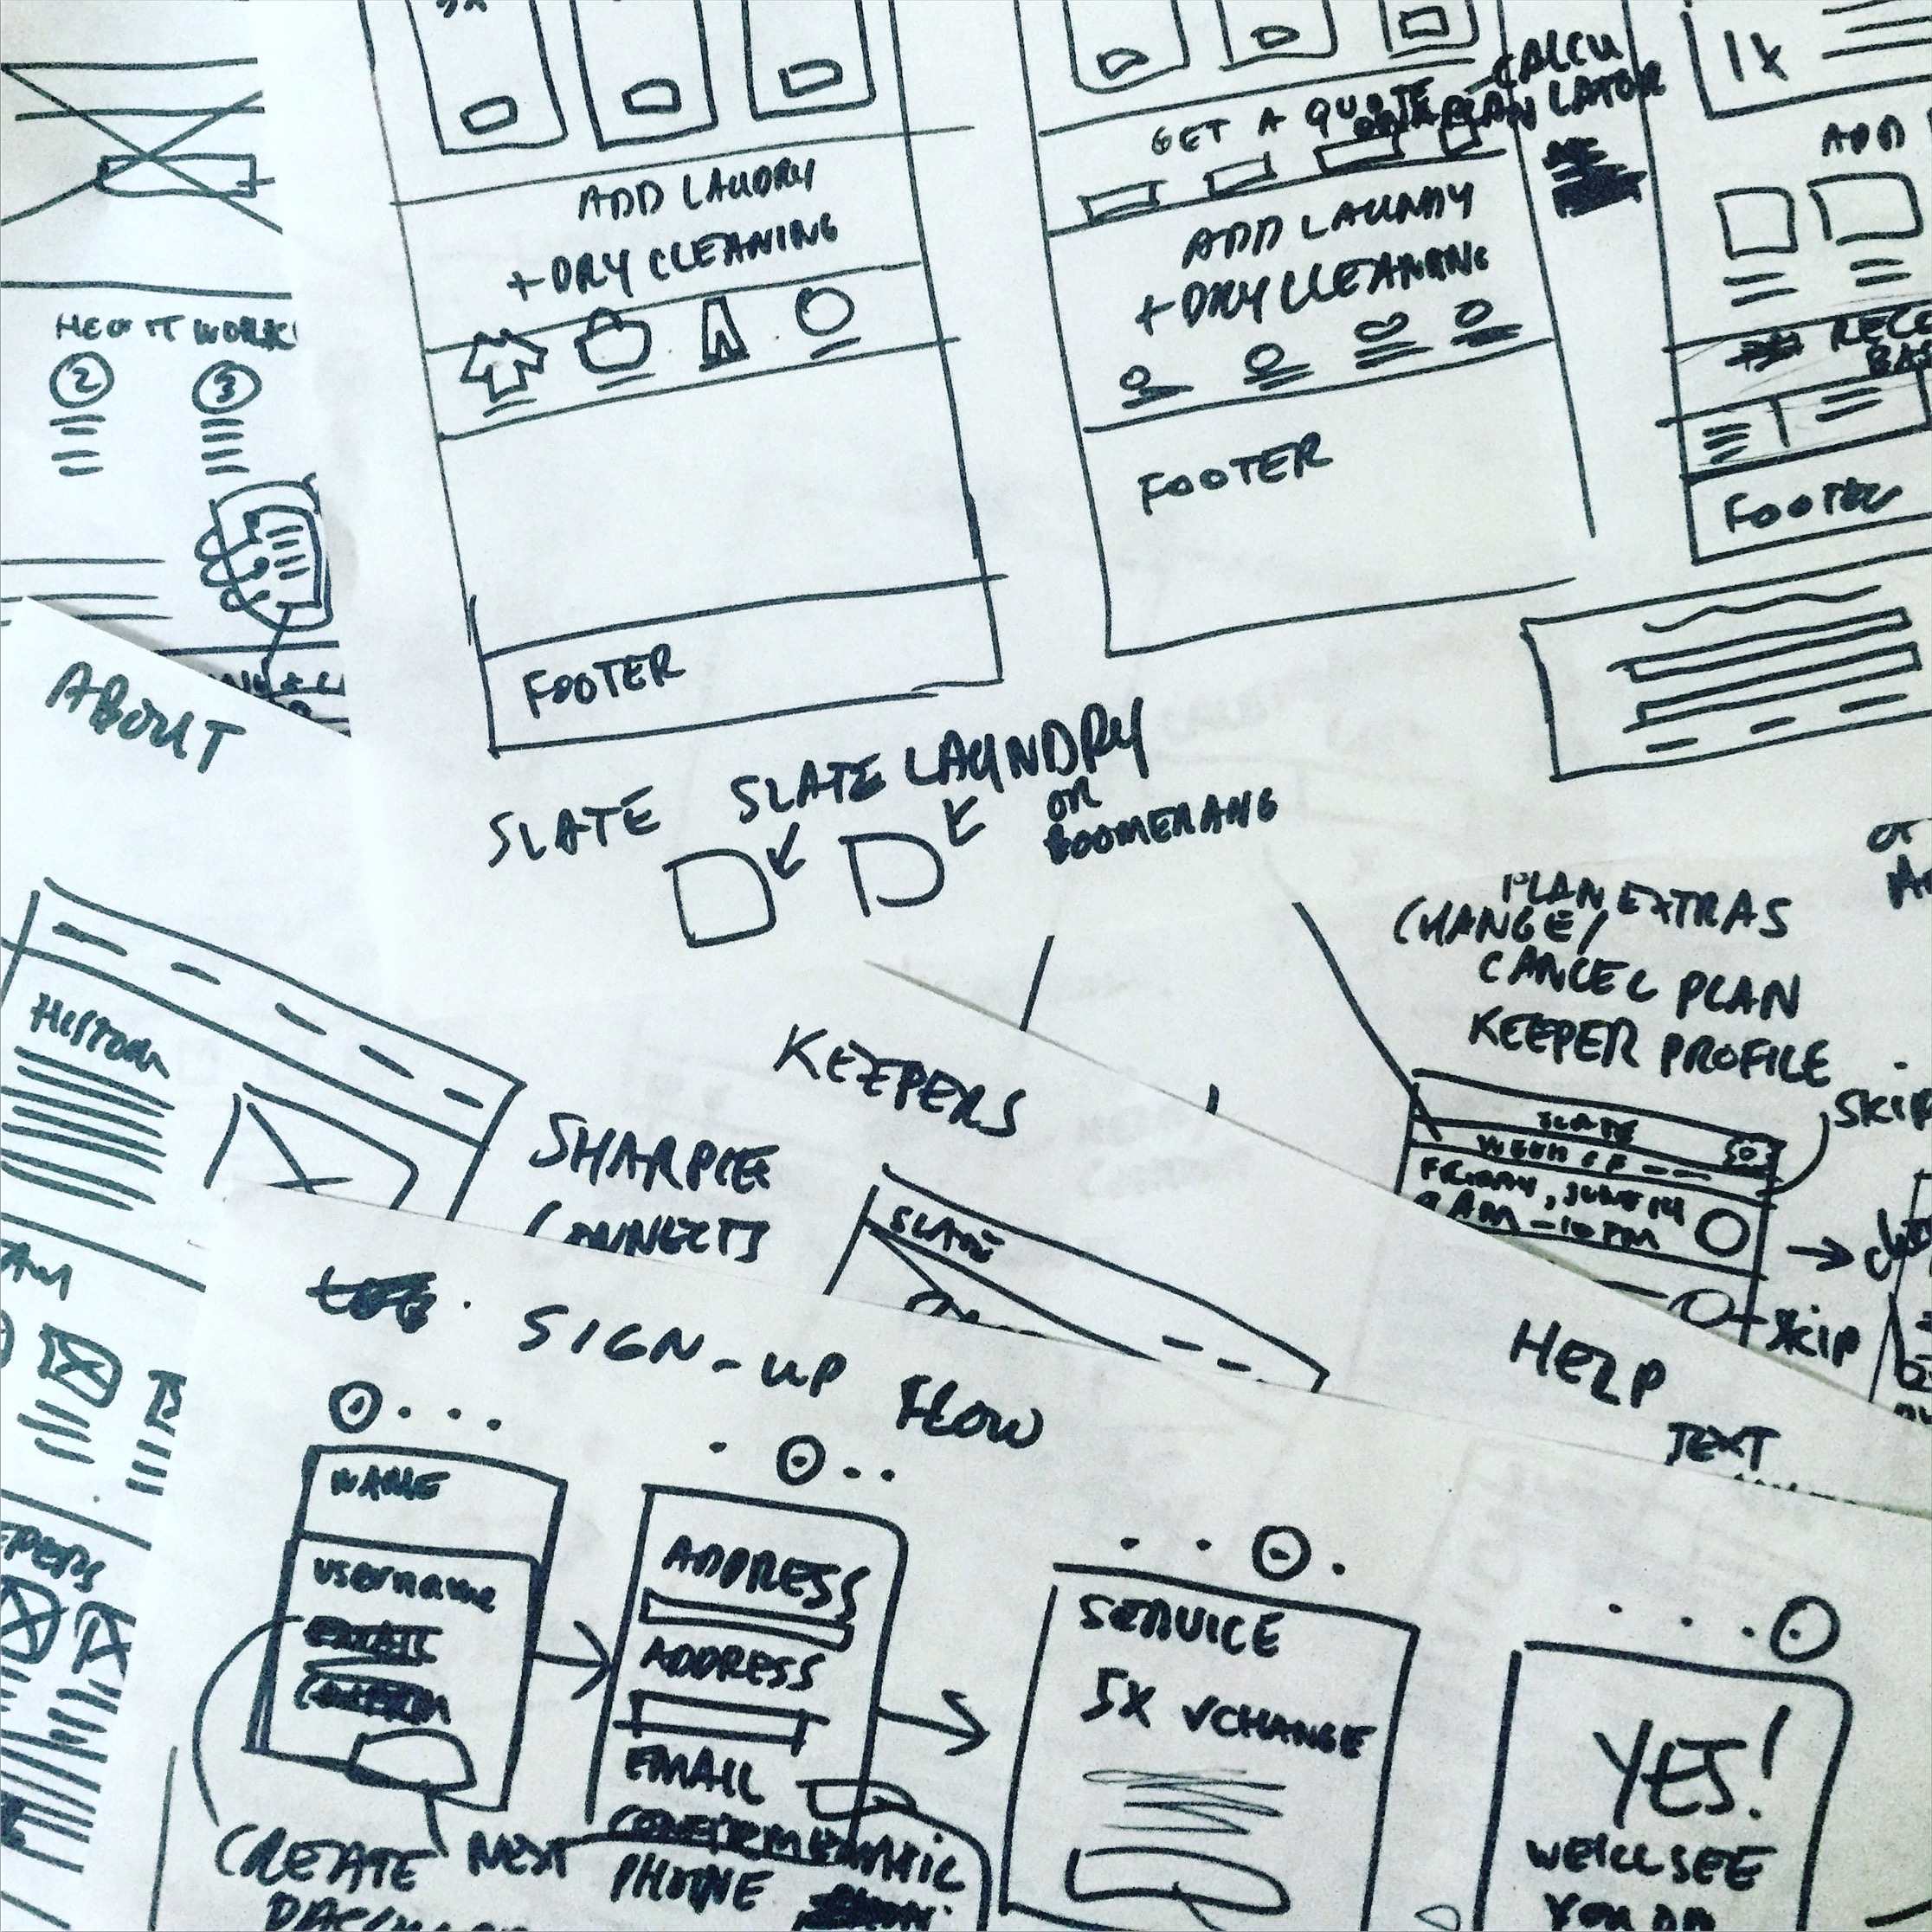 1X
CALCU
LATOR
GET A QUOTE
PLAN
ADD LAUDRY
+ DRY CLEANING
ADD LAUNDY
+ DRY CLEANING
ADD
HOW IT WORKS
2
3
FOOTER
FOOTER
FOOTER
ABOUT
SLATE
SLATE LAUNDRY
OR
BOOMERANG
PLAN EXTRAS
CHANGE/
CANCEL PLAN
KEEPER PROFILE
SKIP
SLATE
WEEK OF --
FRIDAY, JUNE 14
8AM - 10PM
SKIP
HISTORY
KEEPERS
SHARPIE
CONNECTS
SLATE
HELP
TEXT
SIGN-UP FLOW
NAME
USERNAME
EMAIL
CONFIRM
CREATE
NEXT
ADDRESS
ADDRESS
EMAIL
CONFIRM EMAIL
PHONE
SERVICE
5X √CHANGE
YES!
WE'LL SEE
YOU ON